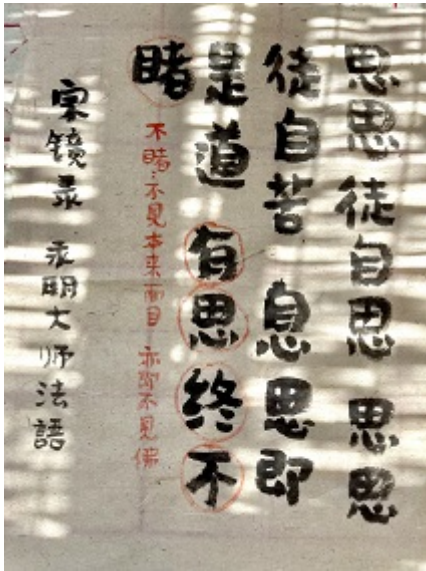 思思徒自思 思思
徒自苦 息思即
是道 有思终不
睹
不睹·不見本来面目 亦即不見佛
宗镜录 永明大师法語